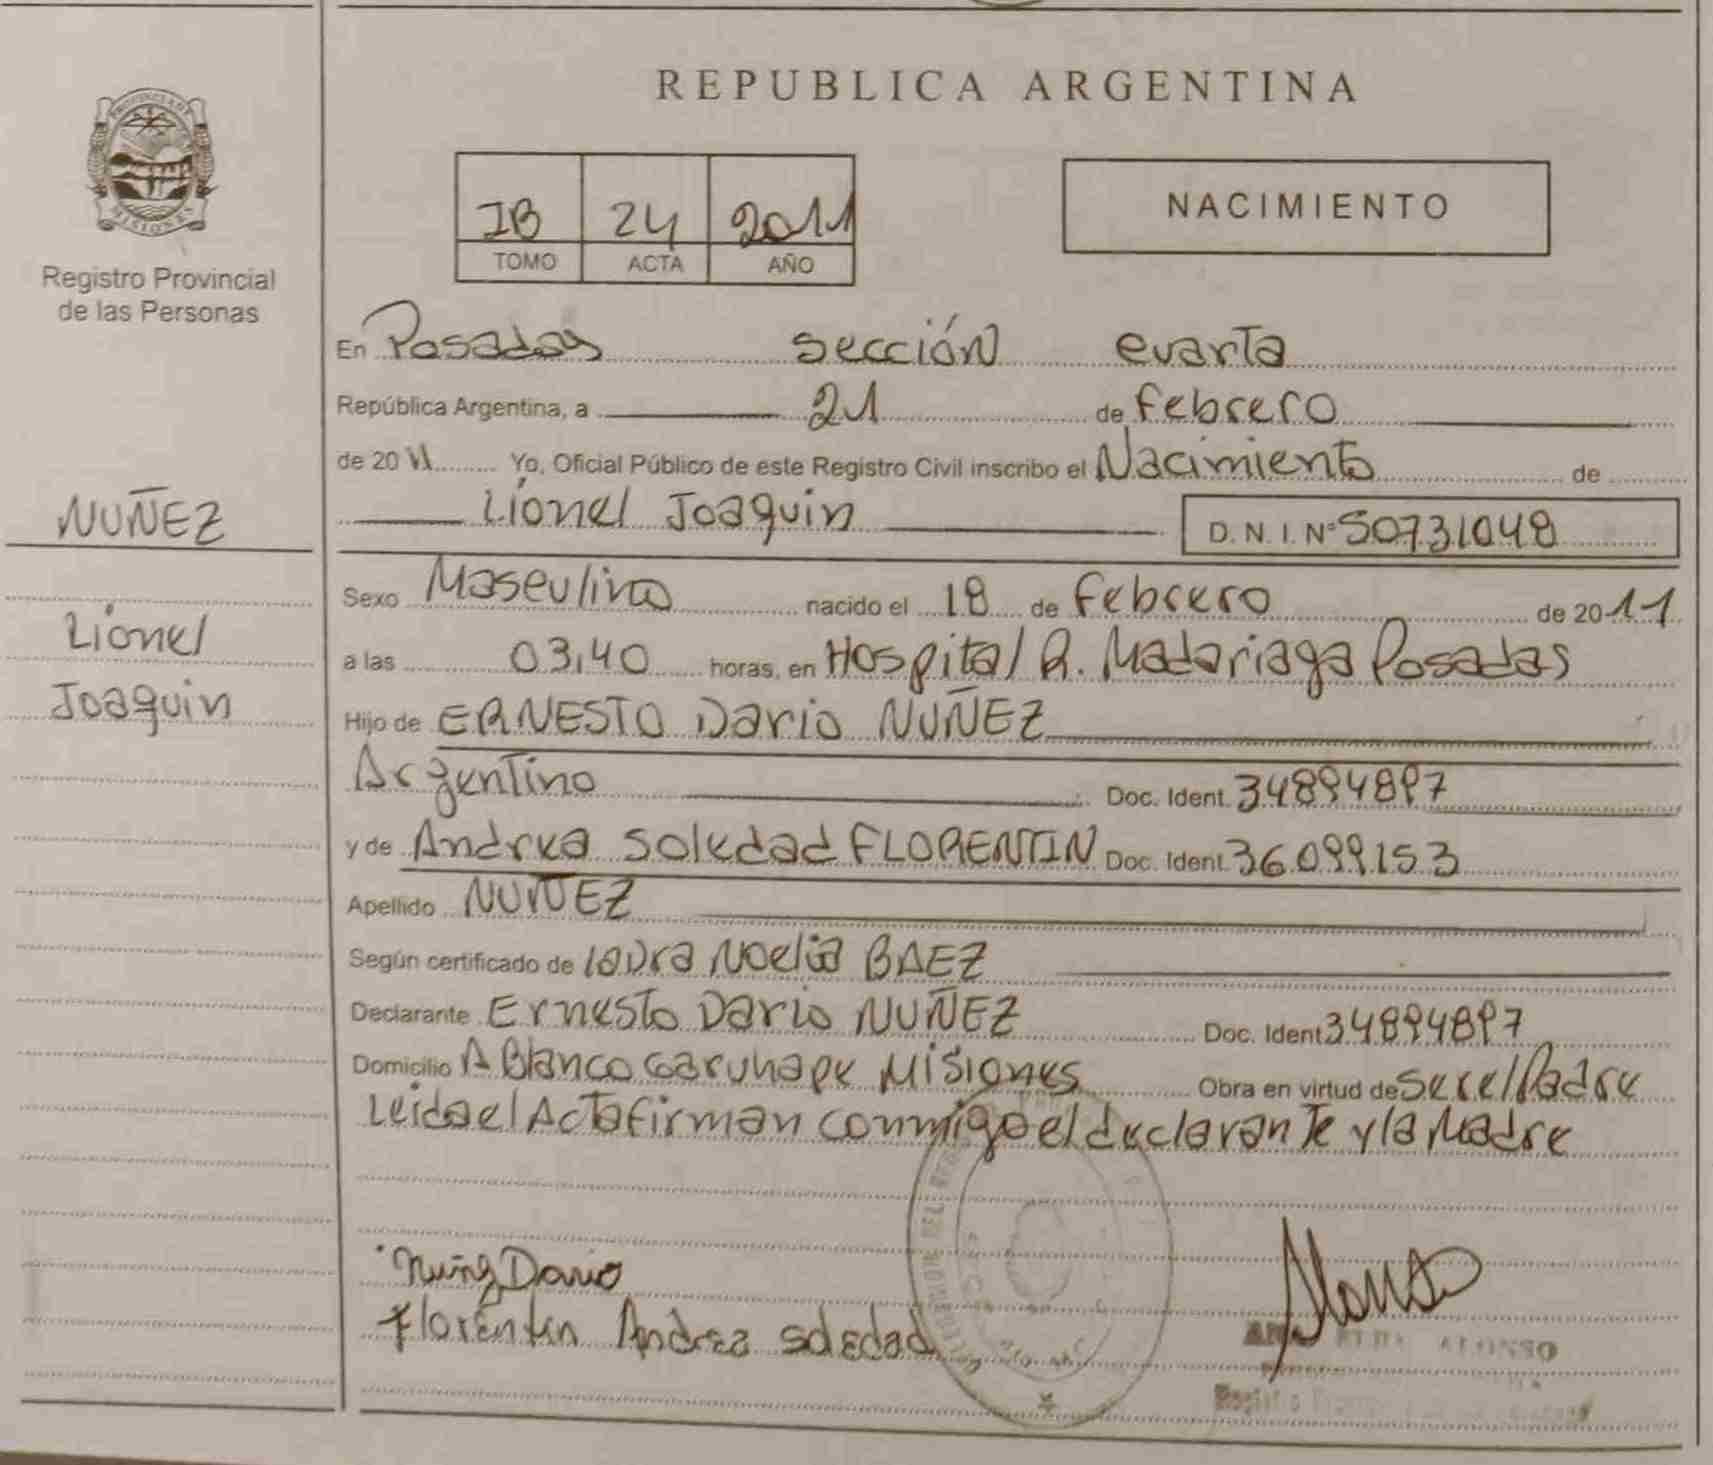 REPUBLICA ARGENTINA
PROVINCIA DE MISIONES
Registro Provincial
de las Personas
IB 24 2011
TOMO ACTA AÑO
NACIMIENTO
En Posadas sección cuarta
República Argentina, a 21 de febrero
de 2011 Yo, Oficial Público de este Registro Civil inscribo el Nacimiento de
Lionel Joaquin D.N.I. Nº 50731048
NUÑEZ
Lionel
Joaquin
Sexo Masculino nacido el 18 de febrero de 2011
a las 03,40 horas, en Hospital R. Madariaga Posadas
Hijo de ERNESTO Dario NUÑEZ
Argentino Doc. Ident. 34894897
y de Andrea Soledad FLORENTIN Doc. Ident. 36.099.153
Apellido NUÑEZ
Según certificado de Laura Noelia BAEZ
Declarante Ernesto Dario NUÑEZ Doc. Ident 34894897
Domicilio A Blanco Garuhape Misiones Obra en virtud de ser el Padre
Leida el Acta firman conmigo el declarante y la Madre
Nuñez Dario
Florentin Andrea Soledad